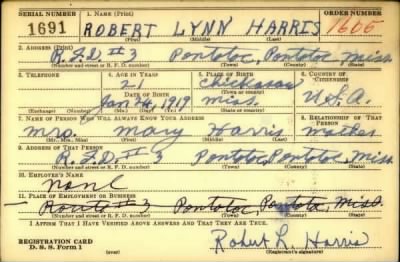 SERIAL NUMBER 1. NAME (Print) ORDER NUMBER
1691 ROBERT LYNN HARRIS 1605
(First) (Middle) (Last)
2. ADDRESS (Print)
R.F.D #3 Pontotoc, Pontotoc, Miss
(Number and street or R. F. D. number) (Town) (County) (State)
3. TELEPHONE 4. AGE IN YEARS 5. PLACE OF BIRTH 6. COUNTRY OF CITIZENSHIP
21 Chickasaw
DATE OF BIRTH (Town or county)
Jan 24, 1919 Miss. U.S.A.
(Exchange) (Number) (Mo.) (Day) (Yr.) (State or country)
7. NAME OF PERSON WHO WILL ALWAYS KNOW YOUR ADDRESS 8. RELATIONSHIP OF THAT PERSON
Mrs. Mary Harris Mother
(Mr., Mrs., Miss) (First) (Middle) (Last)
9. ADDRESS OF THAT PERSON
R.F.D. #3 Pontotoc, Pontotoc, Miss
(Number and street or R. F. D. number) (Town) (County) (State)
10. EMPLOYER'S NAME
None
11. PLACE OF EMPLOYMENT OR BUSINESS
Route #3 Pontotoc, Pontotoc, Miss.
(Number and street or R. F. D. number) (Town) (County) (State)
I AFFIRM THAT I HAVE VERIFIED ABOVE ANSWERS AND THAT THEY ARE TRUE.
REGISTRATION CARD
D. S. S. Form 1 (over) Robert L. Harris
(Registrant's signature)